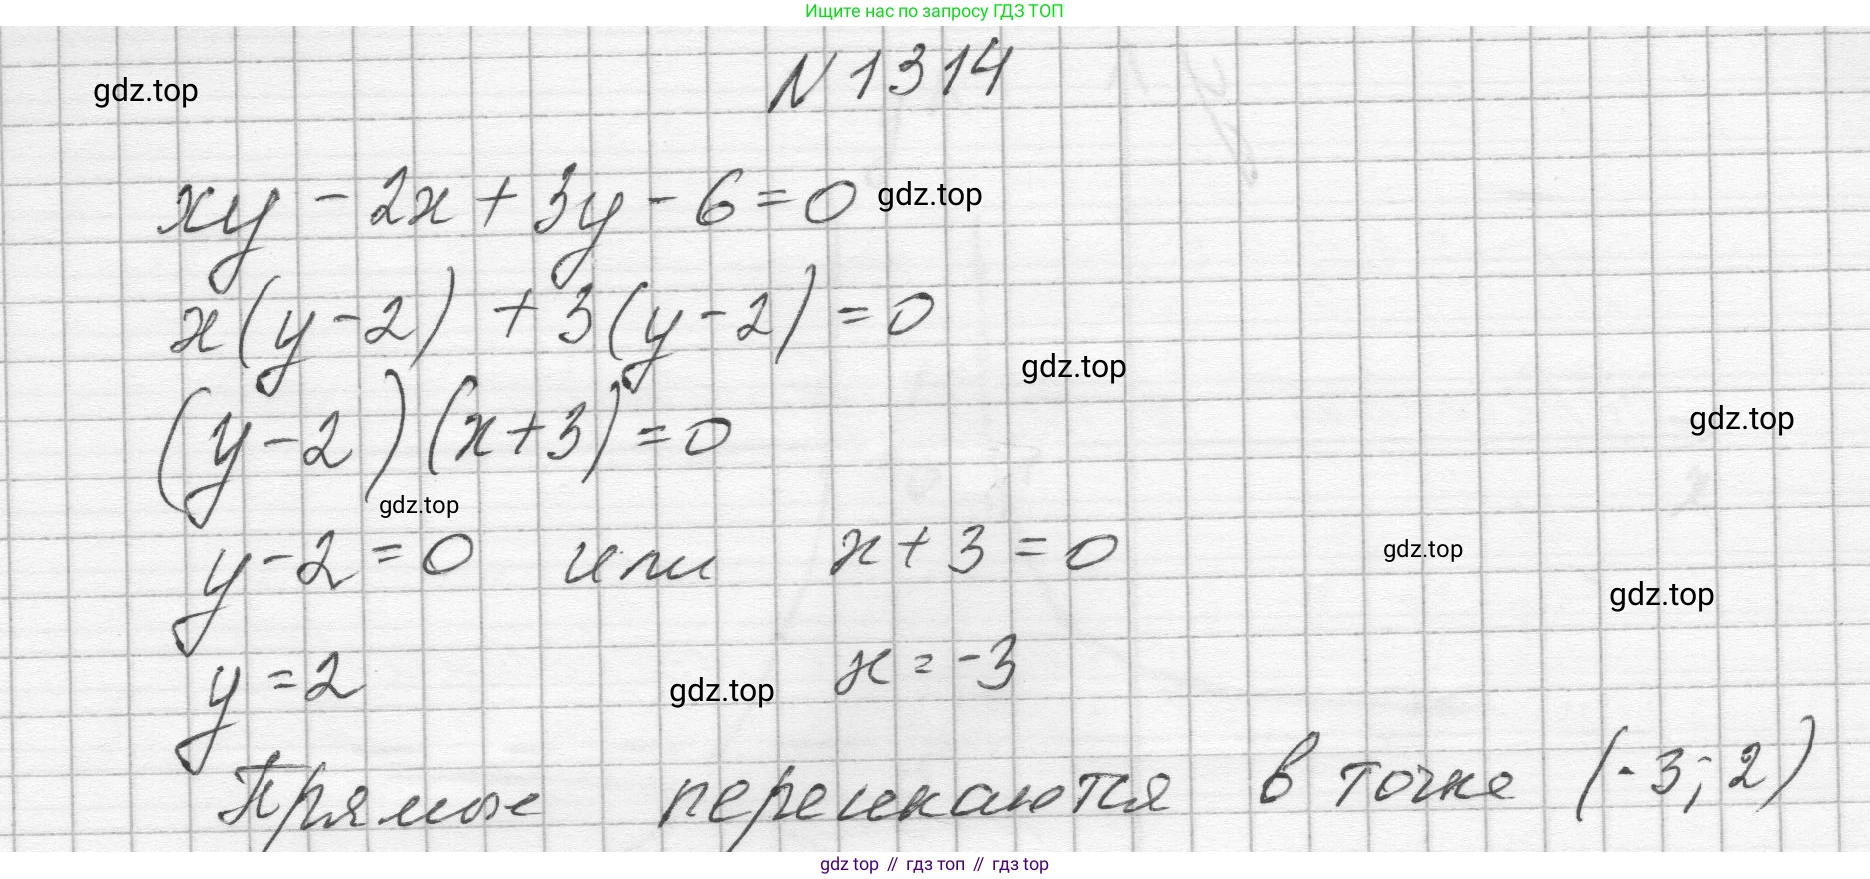 Ищите нас по запросу ГДЗ ТОП
N 1314
gdz.top
xy - 2x + 3y - 6 = 0
gdz.top
x(y-2) + 3(y-2) = 0
gdz.top
gdz.top
(y-2)(x+3) = 0
gdz.top
y-2=0 или x+3=0
gdz.top
gdz.top
y=2 x=-3
gdz.top
Прямые пересекаются в точке (-3;2)
gdz top // гдз топ // gdz top